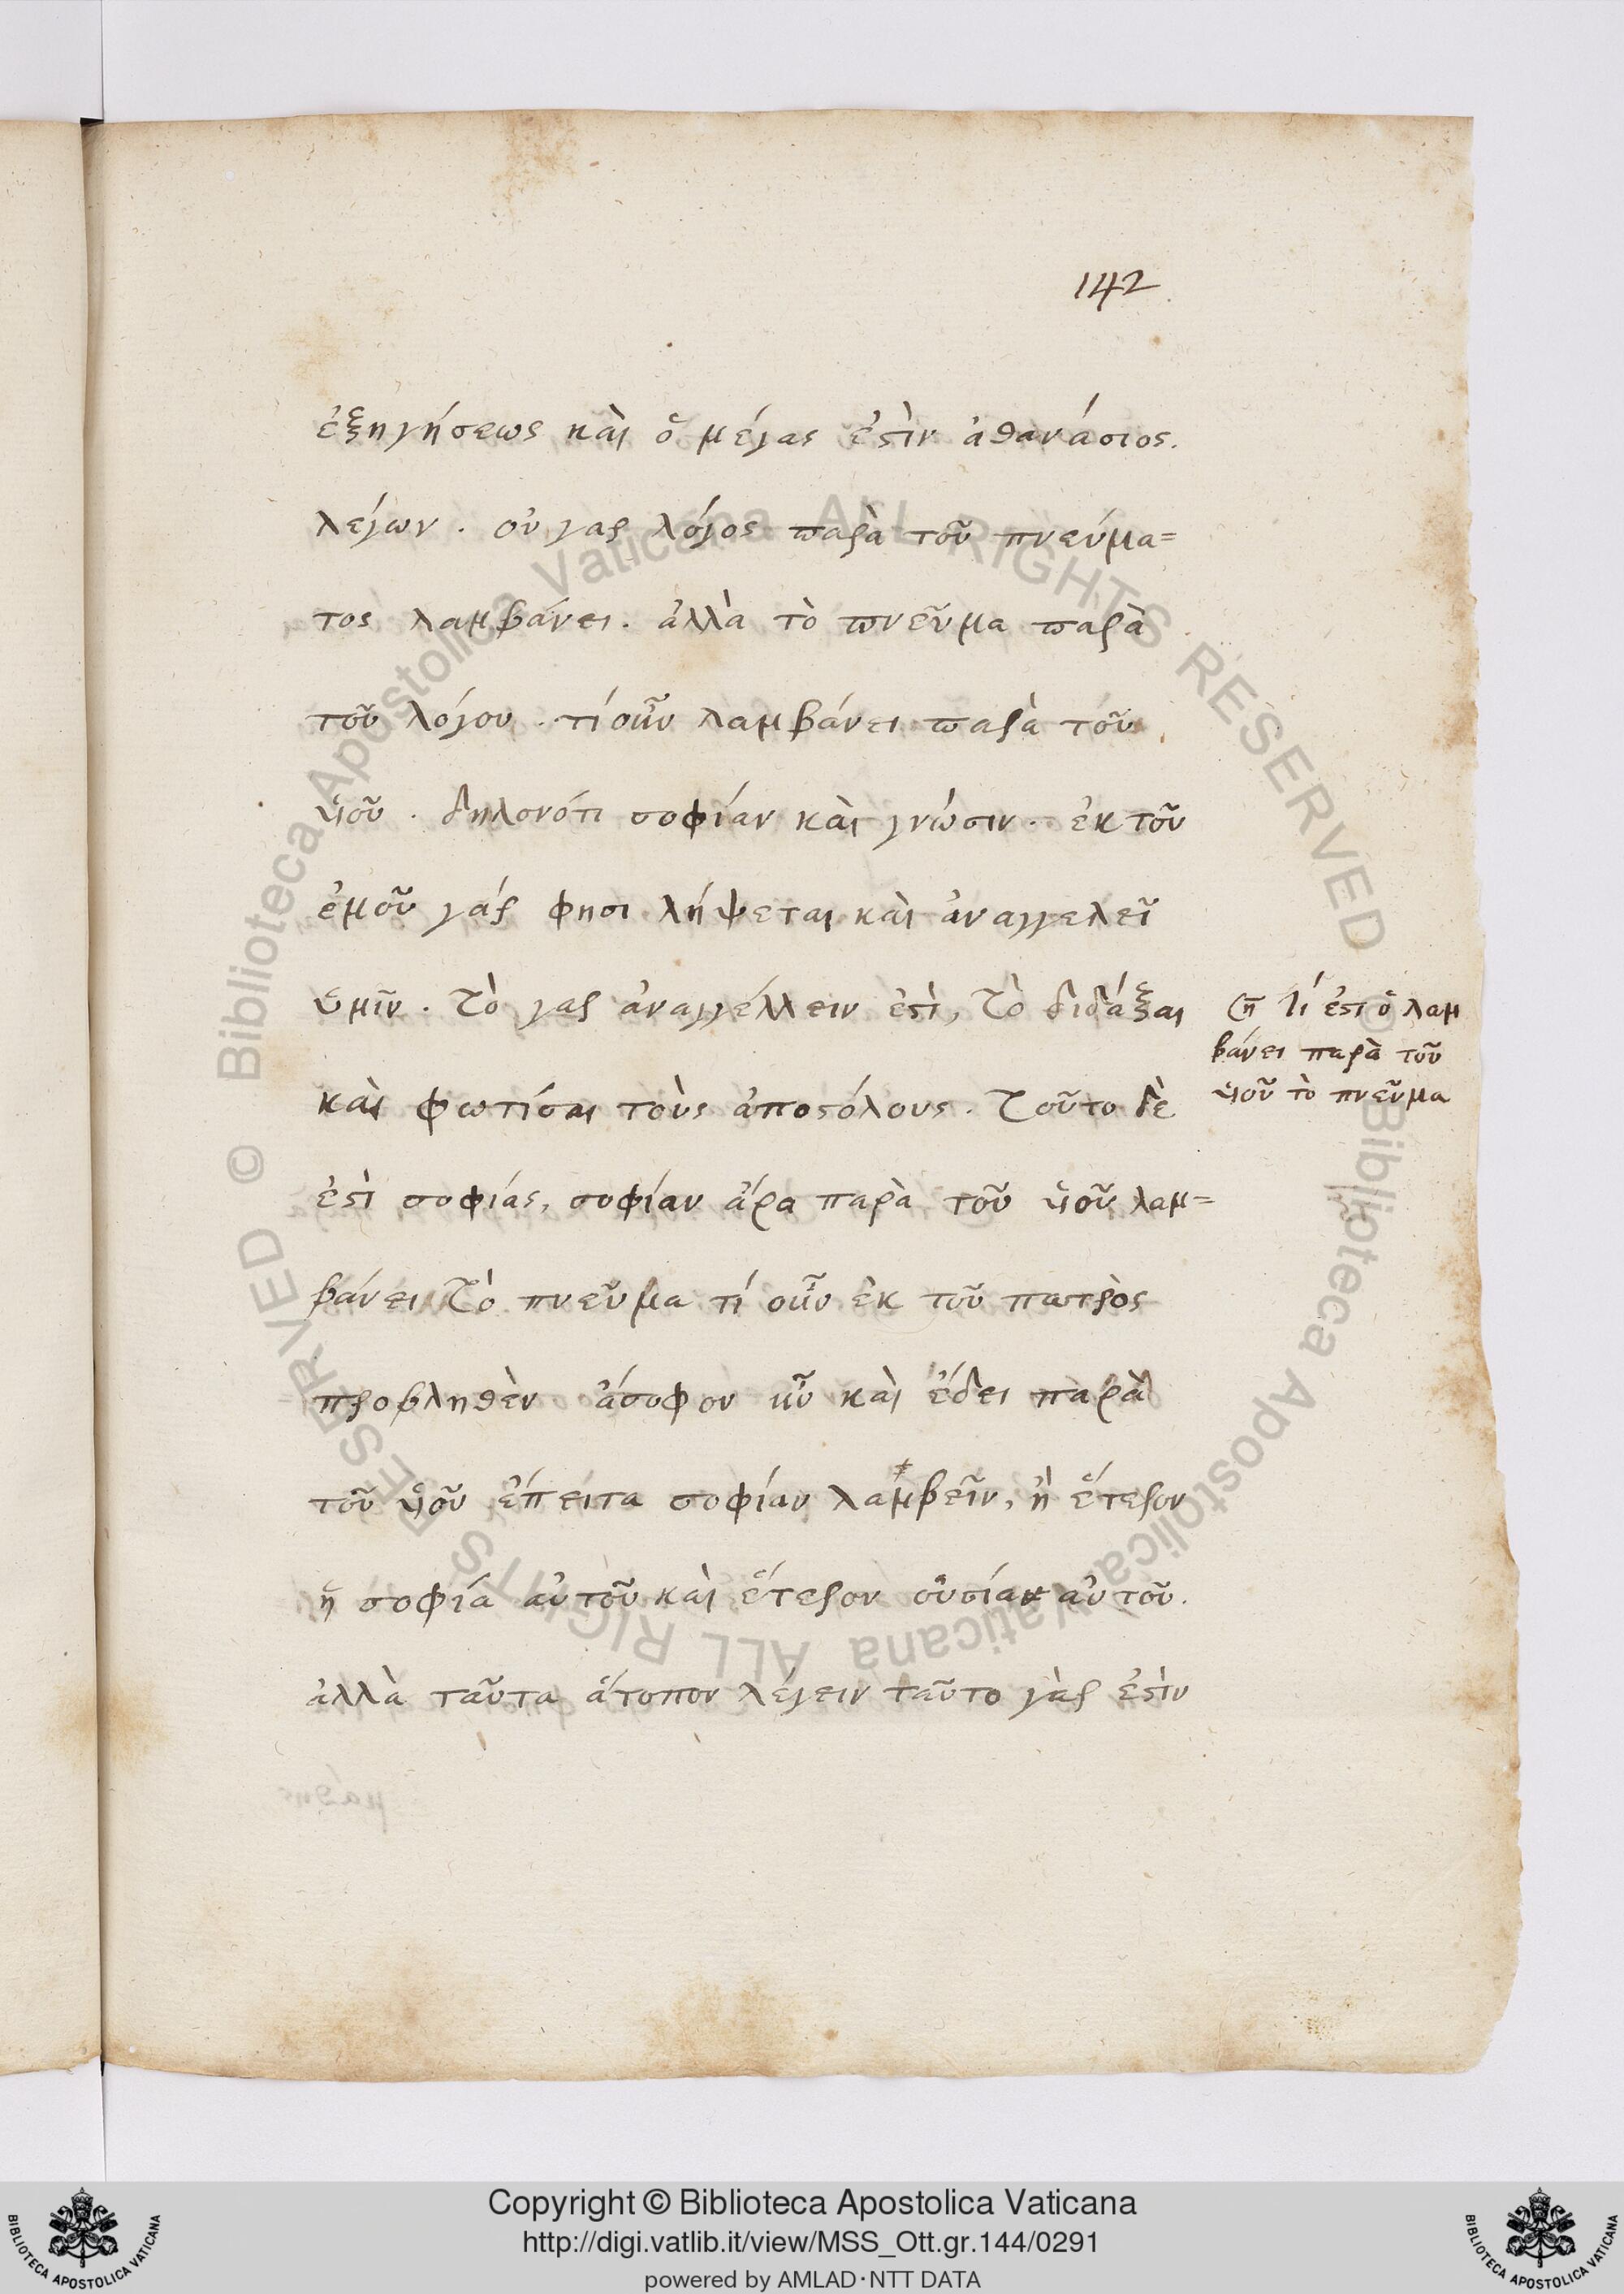 142
ἐξηγήσεως καὶ ὁ μέγας ἐστὶν ἀθανάσιος.
λέγων . οὐ γαρ λόγος παρὰ τοῦ πνεύμα=
τος λαμβάνει . ἀλλὰ τὸ πνεῦμα παρὰ
τοῦ λόγου . τί οὖν λαμβάνει παρὰ τοῦ
υἱοῦ . δηλονότι σοφίαν καὶ γνώσιν . ἐκ τοῦ
ἐμοῦ γάρ φησι λήψεται καὶ ἀναγγελεῖ
ὑμῖν . Τὸ γαρ ἀναγγέλλειν ἐστὶ, Τὸ διδάξαι
καὶ φωτίσαι τοὺς ἀποστόλους . Τοῦτο δὲ
ἐστὶ σοφίας, σοφίαν ἄρα παρὰ τοῦ υἱοῦ λαμ=
βάνει Τὸ πνεῦμα τί οὖν ἐκ τοῦ πατρὸς
προβληθὲν ἄσοφον ἦν καὶ ἔδει παρὰ
τοῦ υἱοῦ ἔπειτα σοφίαν λαμβεῖν, ἢ ἕτερον
ἡ σοφία αὐτοῦ καὶ ἕτερον οὐσία αὐτοῦ.
ἀλλὰ ταῦτα ἄτοπον λέγειν ταῦτο γὰρ ἐστὶν
ση Τί ἐστι ὃ λαμ
βάνει παρὰ τοῦ
υἱοῦ τὸ πνεῦμα
© Biblioteca Apostolica Vaticana ALL RIGHTS RESERVED
© Biblioteca Apostolica Vaticana ALL RIGHTS RESERVED
Copyright © Biblioteca Apostolica Vaticana
http://digi.vatlib.it/view/MSS_Ott.gr.144/0291
powered by AMLAD·NTT DATA
BIBLIOTECA APOSTOLICA VATICANA
BIBLIOTECA APOSTOLICA VATICANA